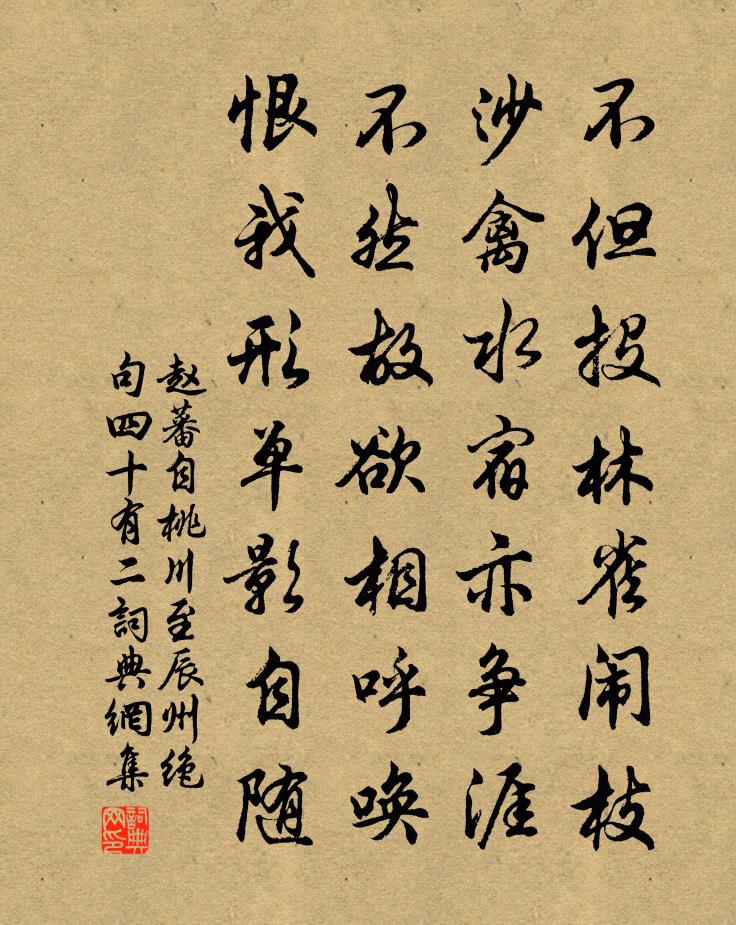 不但投林雀闹枝
沙禽水宿亦争涯
不然故欲相呼唤
恨我形单影自随
赵蕃自桃川至辰州绝
句四十有二詞典網集
詞典
网印